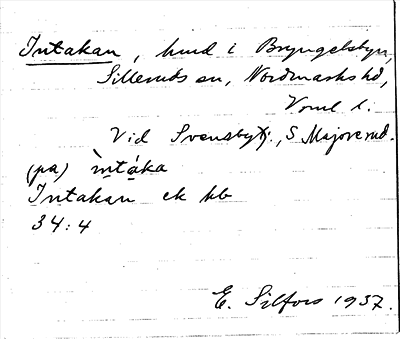 Intakan, hmd i Bryngelsbyn,
Silleruds sn, Nordmarks hd,
Vrml l.
Vid Svensbytj., S Majorerud.
(pa) ìntáka
Intakan ek kb
34:4
E. Silfors 1937.